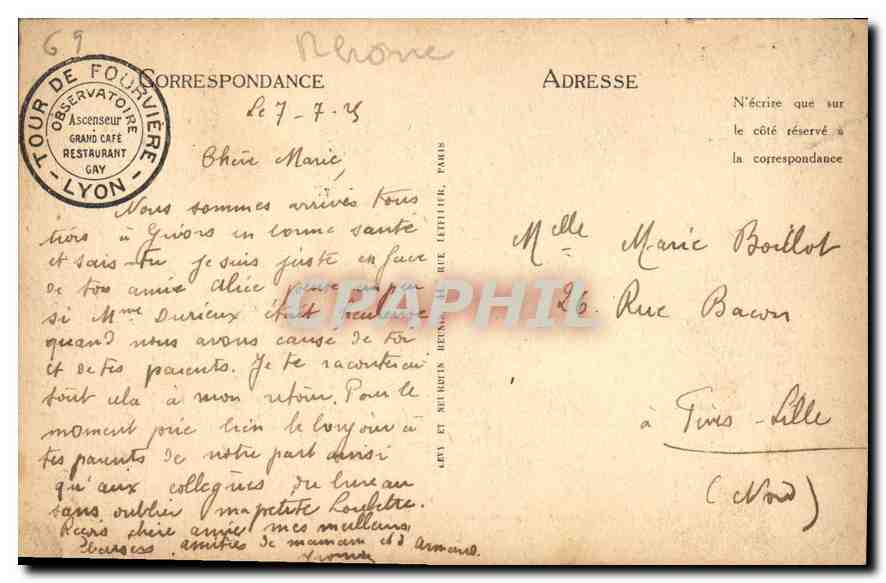 69
Rhone
TOUR DE FOURVIÈRE
OBSERVATOIRE
Ascenseur
GRAND CAFÉ
RESTAURANT
GAY
- LYON -
CORRESPONDANCE
Le 7-7-25
Chère Marie,
Nous sommes arrivés tous
trois à Givors en bonne santé
et sais-tu je suis juste en face
de ton amie Alice pense un peu
si Mme Durieux était heureuse
quand nous avons causé de toi
et de tes parents. Je te raconterai
tout cela à mon retour. Pour le
moment prie bien le bonjour à
tes parents de notre part ainsi
qu'aux collegues du bureau
sans oublier ma petite Loulette.
Reçois chère amie mes meilleurs
baisers amitiés de maman et d'Armand.
LEVY ET NEURDEIN REUNIS, 44, RUE LETELLIER, PARIS
CPAPHIL
ADRESSE
N'écrire que sur
le côté réservé à
la correspondance
Melle Marie Boillot
26 Rue Bacon
à Fives-Lille
(Nord)